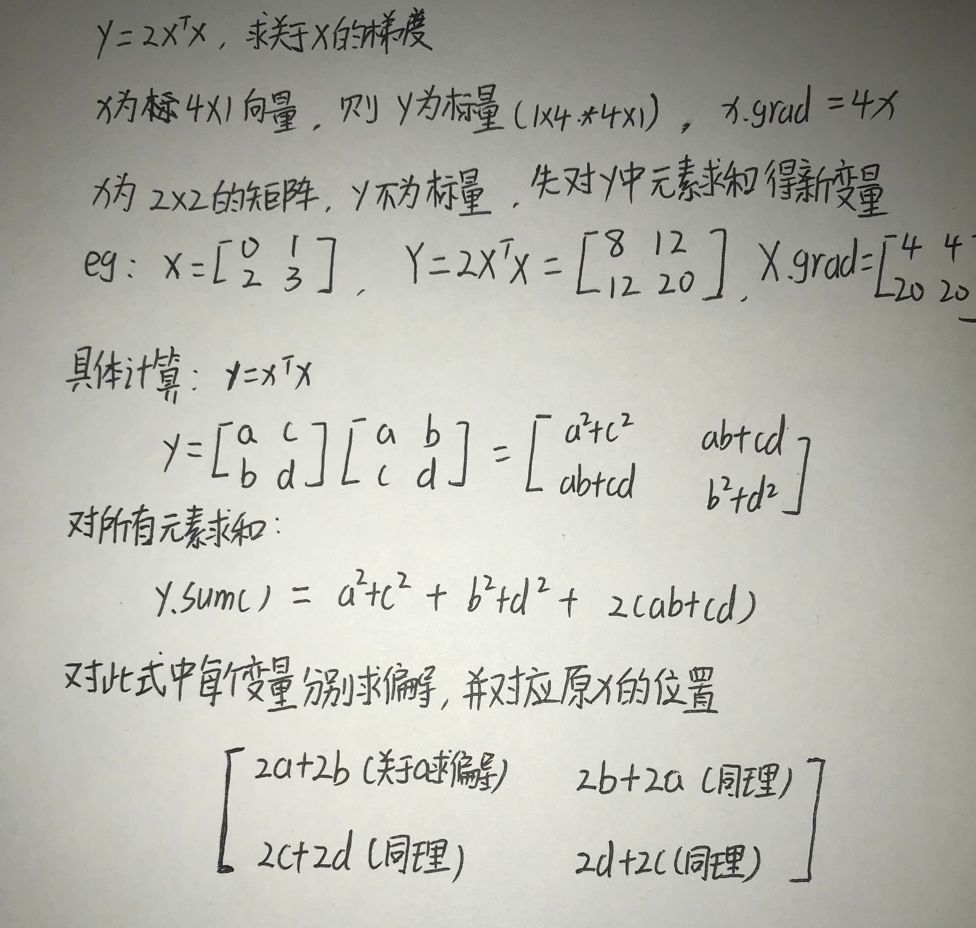 y=2xᵀx，求关于x的梯度
x为标4×1向量，则 y为标量(1×4.*4×1)，x.grad=4x
x为 2×2的矩阵，y不为标量，先对y中元素求和得新变量
eg: x=[0 1; 2 3], Y=2xᵀx=[8 12; 12 20], X.grad=[4 4; 20 20
具体计算：y=xᵀx
y=[a c; b d][a b; c d]=[a²+c² ab+cd; ab+cd b²+d²]
对所有元素求和:
y.sum() = a²+c² + b²+d² + 2(ab+cd)
对此式中每个变量分别求偏导，并对应原x的位置
[2a+2b (关于a求偏导) 2b+2a (同理)
2c+2d (同理) 2d+2c (同理)]